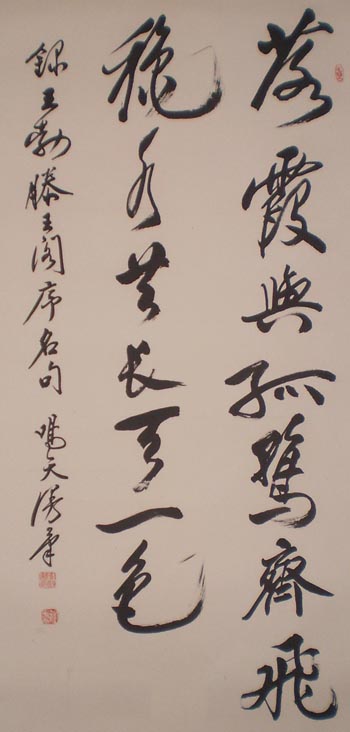 落霞與孤鶩齊飛
秋水共長天一色
錄王勃滕王阁序名句 天涛筆